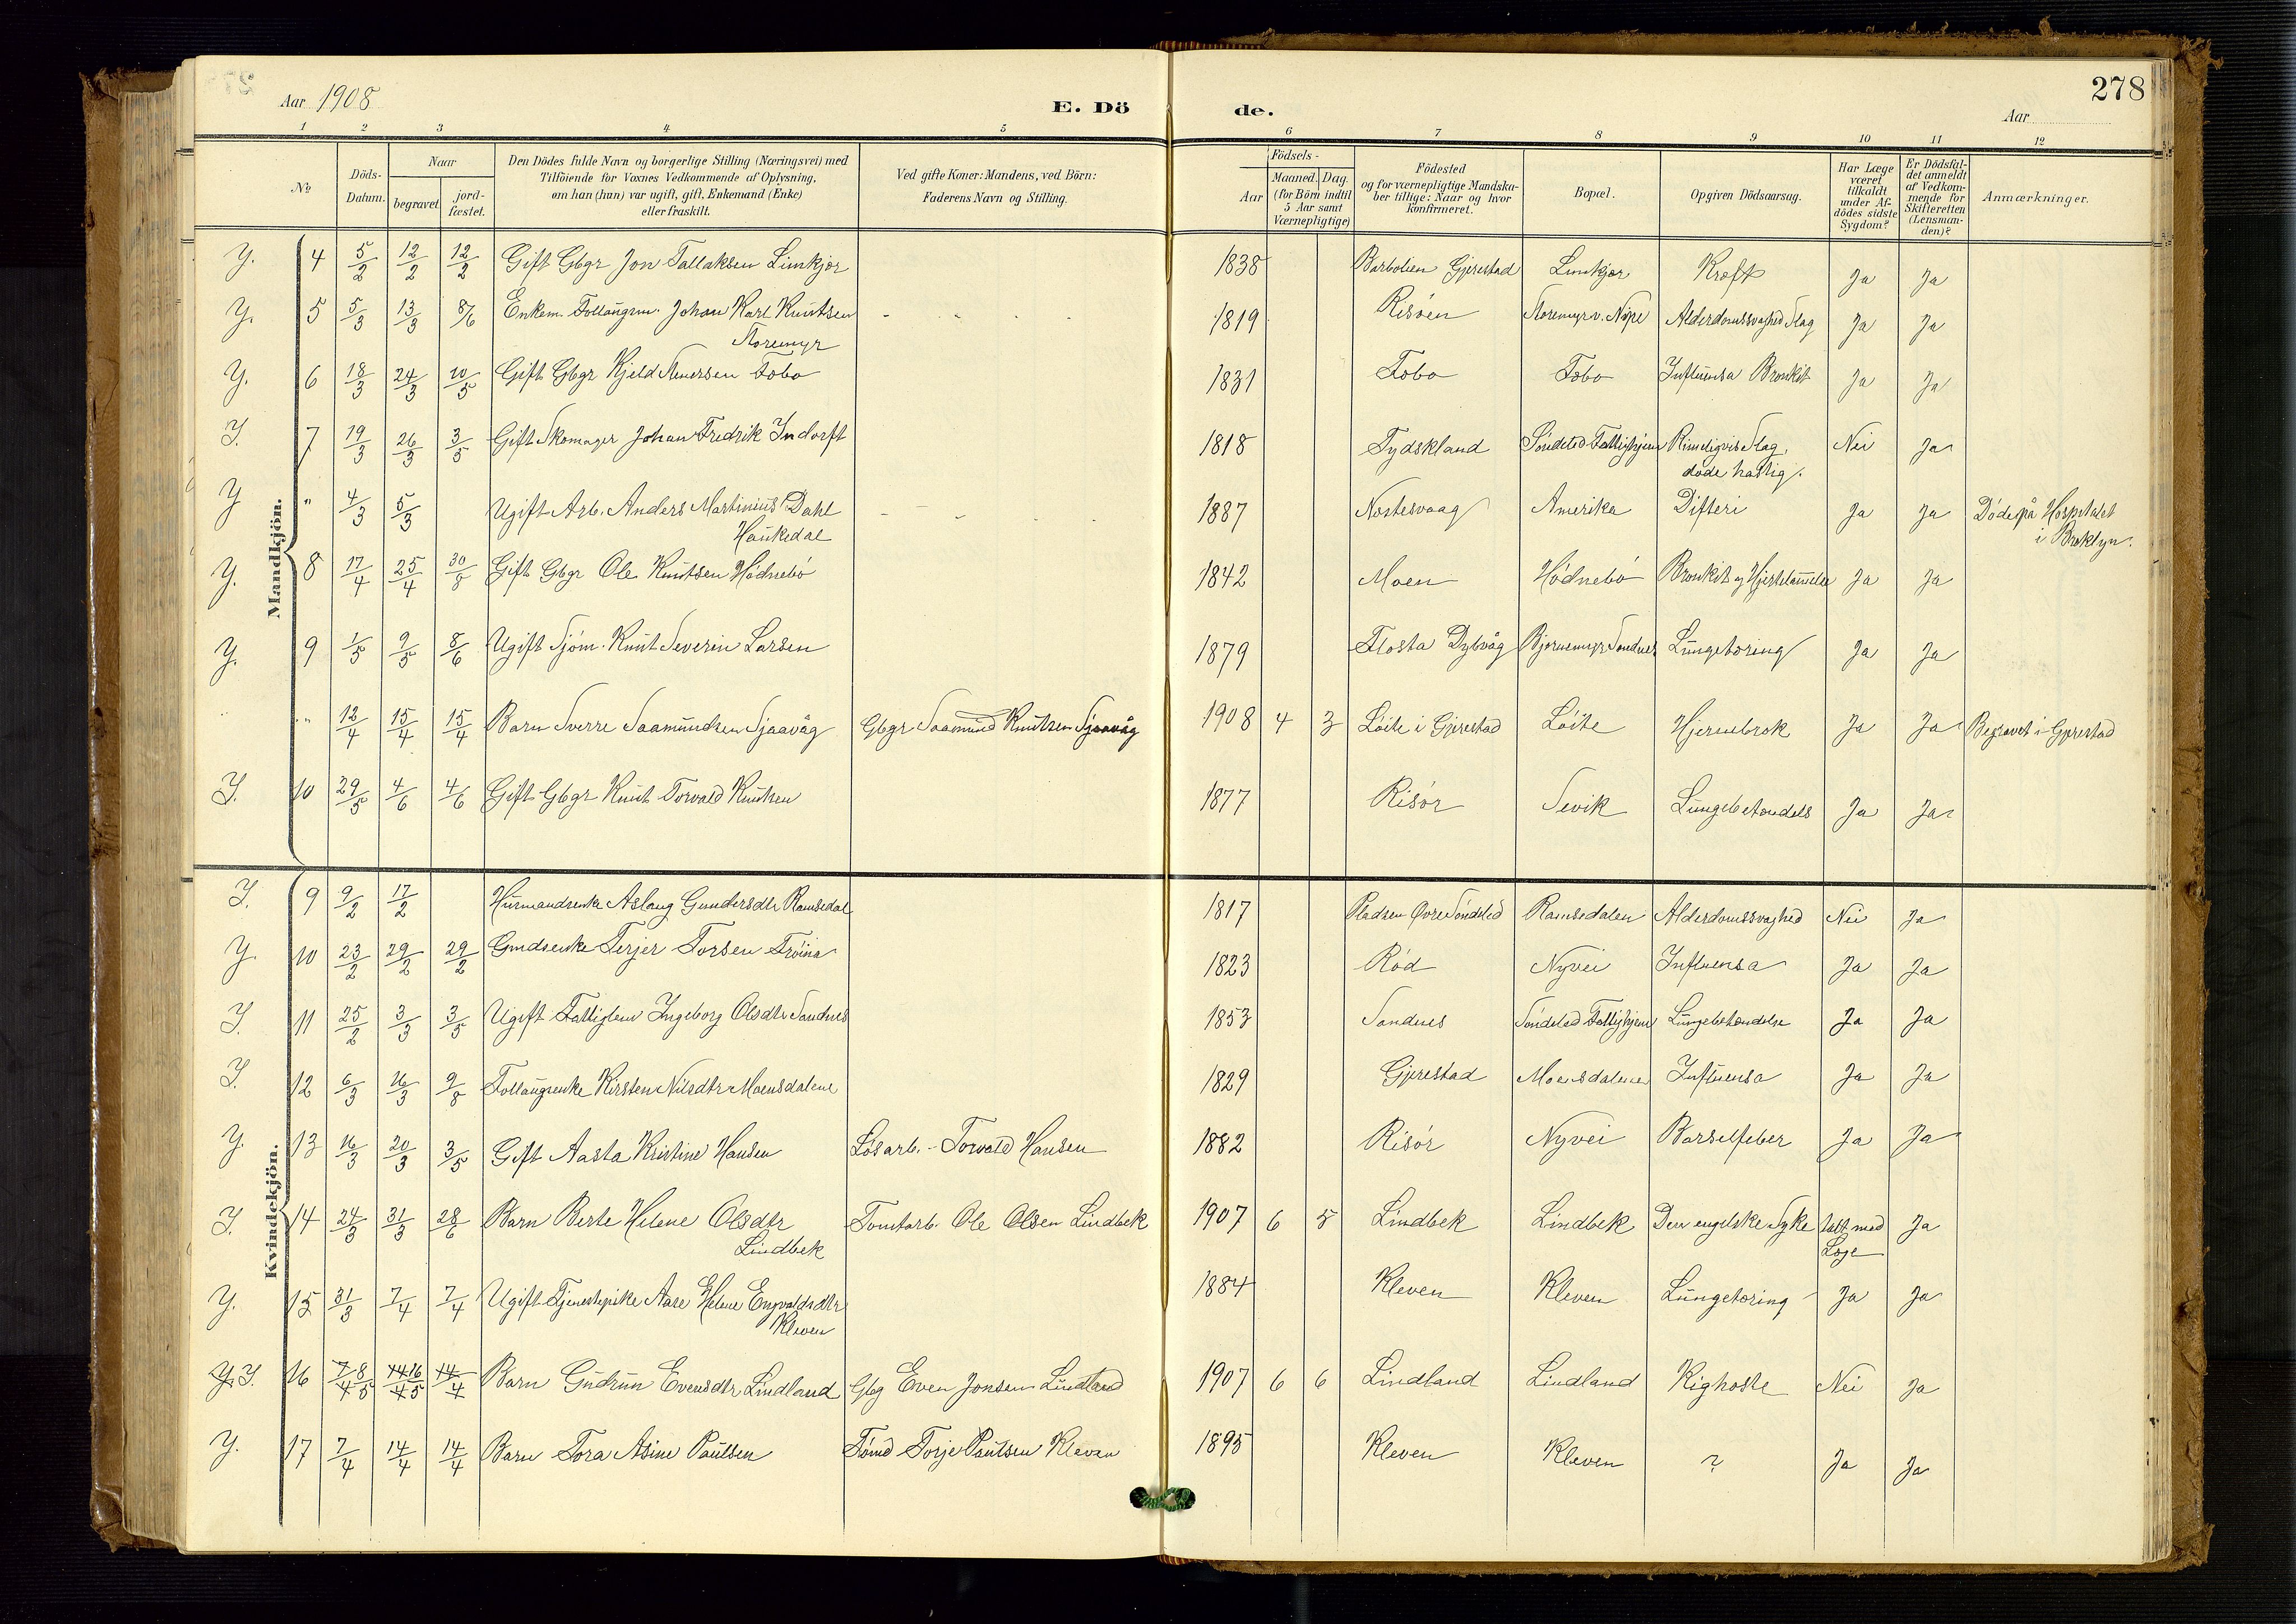 278
Aar 1908 E. Dö de. Aar
1 2 3 4 5 6 7 8 9 10 11 12
№
Döds-Datum.
Naar
begravet
jord-fæstet.
Den Dödes fulde Navn og borgerlige Stilling (Næringsvei) med
Tilföiende for Voxnes Vedkommende af Oplysning,
om han (hun) var ugift, gift, Enkemand (Enke)
eller fraskilt.
Ved gifte Koner: Mandens, ved Börn:
Faderens Navn og Stilling.
Födsels-
Aar
Maaned. Dag.
(for Börn indtil
5 Aar samt
Værnepligtige)
Födested
og for værnepligtige Mandska-
ber tillige: Naar og hvor
konfirmeret.
Bopæl.
Opgiven Dödsaarsag.
Har Læge
været
tilkaldt
under Af-
dödes sidste
Sygdom?
Er Dödsfal-
det anmeldt
af Vedkom-
mende for
Skifteretten
(Lensman-
den)?
Anmærkninger.
Mandkjön.
Y. 4 5/2 12/2 12/2 Gift Gbgr Jon Tallaksen Limkjær 1838 Barbolien Gjerestad Limkjær Kræft Ja Ja
Y. 5 5/3 13/3 8/6 Enkem. Follaugsm. Johan Karl Knutsen 1819 Risöen Storemyr v. Nipe Alderdomssvaghed Slag Ja Ja
Storemyr
Y. 6 18/3 24/3 10/5 Gift Gbgr Kjeld Stenersen Fobo 1831 Fobo Fobo Influensa Bronkit Ja Ja
I. 7 19/3 26/3 3/5 Gift Skomager Johan Fredrik Indorft 1818 Tydskland Söndeled Fattighjem Rimeligvis Slag, Nei Ja
døde hastig.
Y " 4/3 5/3 Ugift Arb. Anders Martinius Dahl 1887 Nostesvaag Amerika Difteri Ja Ja Döde på Hospitalet
Haukedal i Broklyn.
Y. 8 17/4 25/4 30/8 Gift Gbgr Ole Knutsen Hödnebö 1842 Moen Hödnebö Bronkit og Hjertelammelse Ja Ja
Y. 9 1/5 9/5 8/6 Ugift Sjöm. Knut Severin Larsen 1879 Flosta Dybvåg Bjørnemyr Sandnes Lungetæring Ja Ja
" 12/4 15/4 15/4 Barn Sverre Saamundsen Sjaavåg Gbgr Saamund Knutsen Sjaavåg 1908 4 3 Löite i Gjerestad Löite Hjernebrok Ja Ja Begravet i Gjerestad
I. 10 29/5 4/6 4/6 Gift Gbgr Knut Torvald Knutsen 1877 Risör Sevik Lungebetændels Ja Ja
Kvindekjön.
I. 9 9/2 17/2 Husmandsenke Aslaug Gundersdtr Ramsedal 1817 Pladsen Øvre Söndeled Ramsedalen Alderdomssvaghed Nei Ja
Y. 10 23/2 29/2 29/2 Gmdsenke Terjer Torsen Tröina 1823 Röd Nyvei Influensa Ja Ja
I. 11 25/2 3/3 3/5 Ugift Fattiglem Ingeborg Olsdtr Sandnes 1853 Sandnes Söndeled Fattighjem Lungebetændelse Ja Ja
I. 12 6/3 16/3 9/8 Follaugsenke Kirsten Nilsdtr Moensdalene 1829 Gjerestad Moensdalene Influensa Ja Ja
Y. 13 16/3 20/3 3/5 Gift Aasta Kristine Hansen Løsarb. Torvald Hansen 1882 Risör Nyvei Barselfeber Ja Ja
I. 14 24/3 31/3 28/6 Barn Berte Helene Olsdtr Tomtarb. Ole Olsen Lindbek 1907 6 5 Lindbek Lindbek Den engelske Syke talt med Ja
Lindbek Læge
Y. 15 31/3 7/4 7/4 Ugift Tjenestepike Aase Helene Engvaldsdtr 1884 Kleven Kleven Lungetæring Ja Ja
Kleven
Y. I. 16 7/4 8/5 14/4 16/5 14/4 Barn Gudrun Evensdtr Lindland Gbg Even Jonsen Lindland 1907 6 6 Lindland Lindland Kighoste Nei Ja
Y. 17 7/4 14/4 14/4 Barn Tora Asine Paulsen Tömd Torje Paulsen Kleven 1895 Kleven Kleven ? Ja Ja